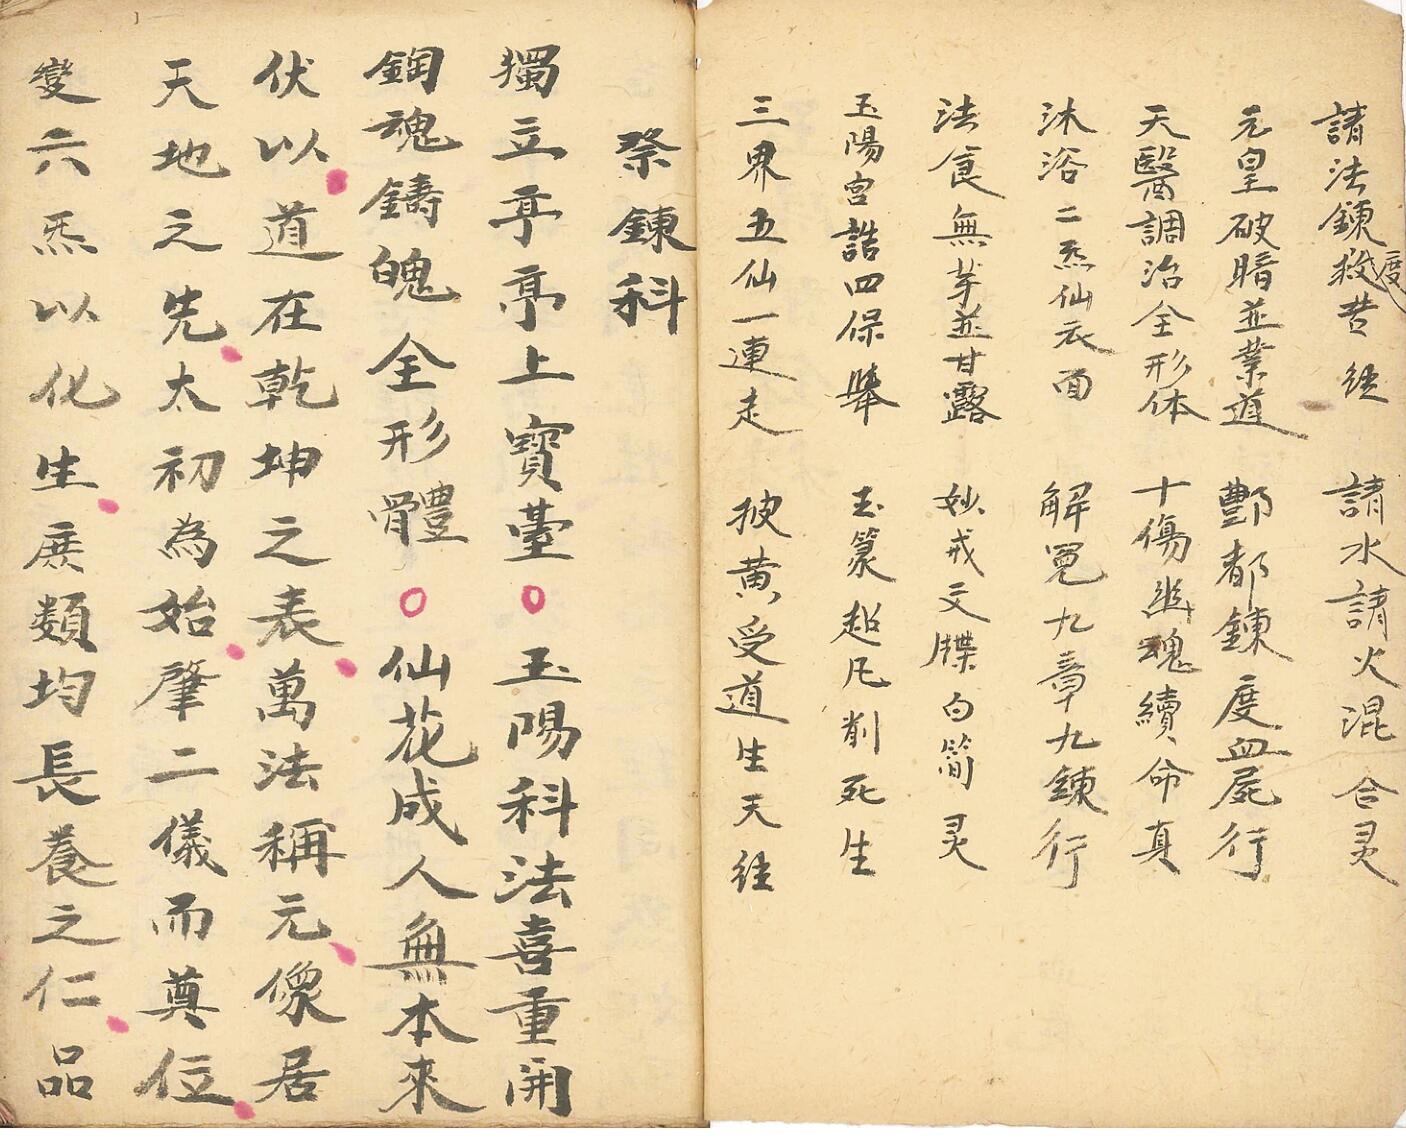 請法鍊度救苦往 請水請火混合灵
元皇破暗並業道 酆都鍊度血屍行
天醫調治全形体 十傷幽魂續命真
沐浴二炁仙衣面 解冤九章九鍊行
法食無芋並甘露 妙戒文牒白简灵
玉陽宮誥四保舉 玉篆超凡削死生
三界五仙一連走 披黄受道生天往
祭鍊科
獨立亭亭上寶臺○玉陽科法喜重開
鋼魂鑄魄全形體○仙花成人無本來
伏以道在乾坤之表萬法稱元像居
天地之先太初為始肇二儀而奠位
變六炁以化生庶類均長養之仁品